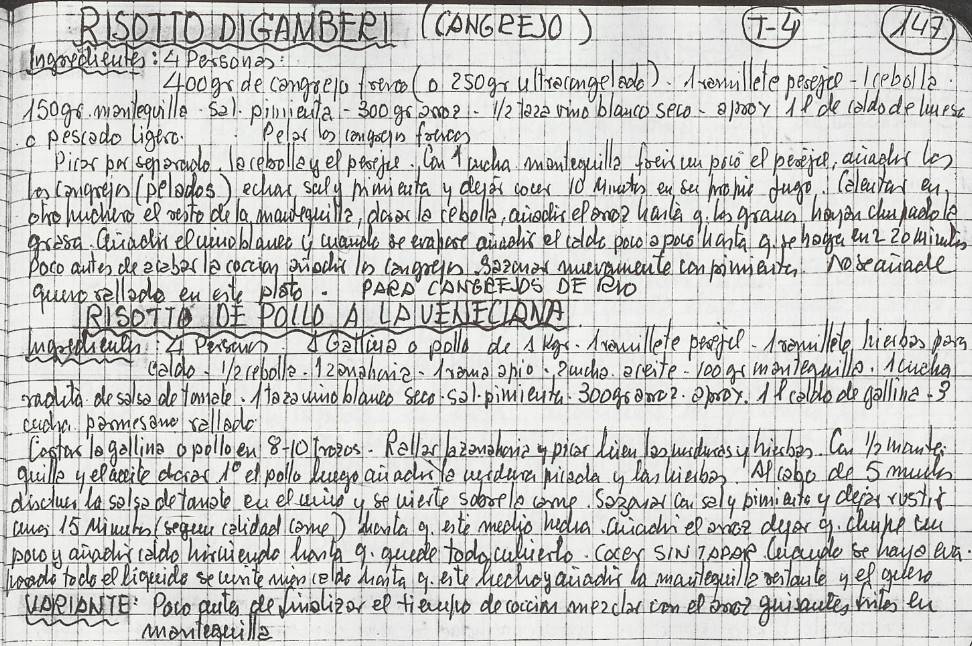 RISOTTO DI GAMBERI (CANGREJO) T-4 147
Ingredientes: 4 Personas:
400 gr de cangrejo fresco (o 250 gr ultracongelado) - 1 ramillete perejil - 1 cebolla -
150 gr. mantequilla - sal - pimienta - 300 gr arroz - 1/2 taza vino blanco seco - aprox 1 l de caldo de hueso
o pescado ligero. Pelar los cangrejos frescos
Picar por separado, la cebolla y el perejil. Con 1 cucha mantequilla freir un poco el perejil, añadir los
los cangrejos (pelados) echar sal y pimienta y dejar cocer 10 Minutos en su propio jugo. Calentar en
otro puchero el resto de la mantequilla, dorar la cebolla, añadir el arroz hasta q. los granos hayan chupado la
grasa. Añadir el vino blanco y cuando se evapore añadir el caldo poco a poco hasta q. se haga en 20 minutos
Poco antes de acabar la coccion añadir los cangrejos. Sazonar nuevamente con pimienta. No se añade
queso rallado en este plato. PARA CANGREJOS DE RIO
RISOTTO DE POLLO A LA VENECIANA
Ingredientes: 4 Personas: 1 Gallina o pollo de 1 kgr. - 1 ramillete perejil - 1 ramillete hierbas para
caldo - 1/2 cebolla - 1 zanahoria - 1 rama apio - 2 cucha. aceite - 100 gr mantequilla - 1 cucha
radita de salsa de tomate - 1 taza vino blanco seco - sal - pimienta - 300 gr arroz - aprox. 1 l caldo de gallina - 3
cucha. parmesano rallado
Cortar la gallina o pollo en 8-10 trozos. Rallar la zanahoria y picar bien las verduras y hierbas. Con 1/2 mante-
quilla y el aceite dorar 1º el pollo luego añadir la verdura picada y las hierbas. Al cabo de 5 minutos
disolver la salsa de tomate en el vino y se vierte sobre la carne. Sazonar con sal y pimienta y dejar
unos 15 Minutos (segun calidad carne) hasta q. este medio hecha. Añadir el arroz dejar q. chupe un
poco y añadir caldo hirviendo hasta q. quede todo cubierto. COCER SIN TAPAR. Cuando se haya eva-
porado todo el liquido se vierte mas caldo hasta q. este hecho y añadir la mantequilla restante y el queso
VARIANTE: Poco antes de finalizar el tiempo de coccion mezclar con el arroz guisantes fritos en
mantequilla